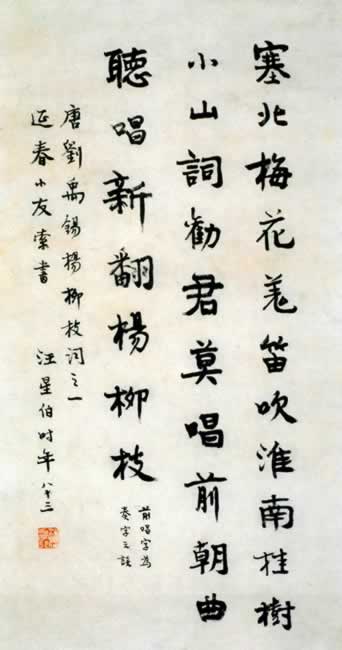 塞北梅花羌笛吹淮南桂樹
小山詞勸君莫唱前朝曲
聽唱新翻楊柳枝
前唱字為
奏字之誤
唐劉禹錫楊柳枝詞之一
延春小友索書 汪星伯時年八十二